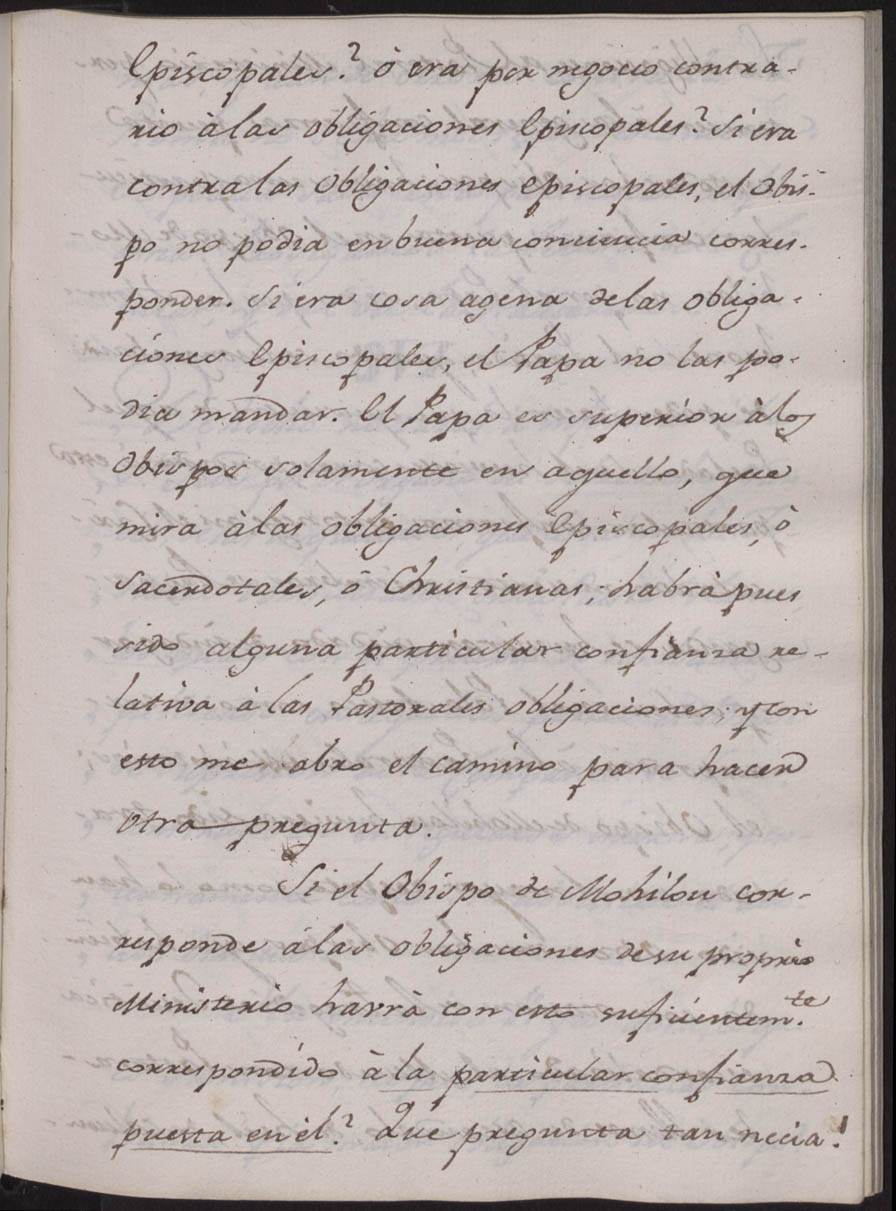 Episcopales? ò era per negocio contra-
rio à las obligaciones Episcopales? Si era
contra las obligaciones episcopales, el Obis-
po no podia en buena conciencia corres-
ponder. Si era cosa agena de las obliga-
ciones Episcopales, el Papa no las po-
dia mandar. El Papa es superior à los
Obispos solamente en aquello, que
mira à las obligaciones Episcopales, ò
sacerdotales, ò Christianas; habrà pues
sido alguna particular confianza re-
lativa à las Pastorales obligaciones; y con
esto me abro el camino para hacer
otra pregunta.
Si el Obispo de Mohilou cor-
responde à las obligaciones de su proprio
Ministerio havrà con esto suficientem.te
correspondido à la particular confianza
puesta en èl? Què pregunta tan necia!